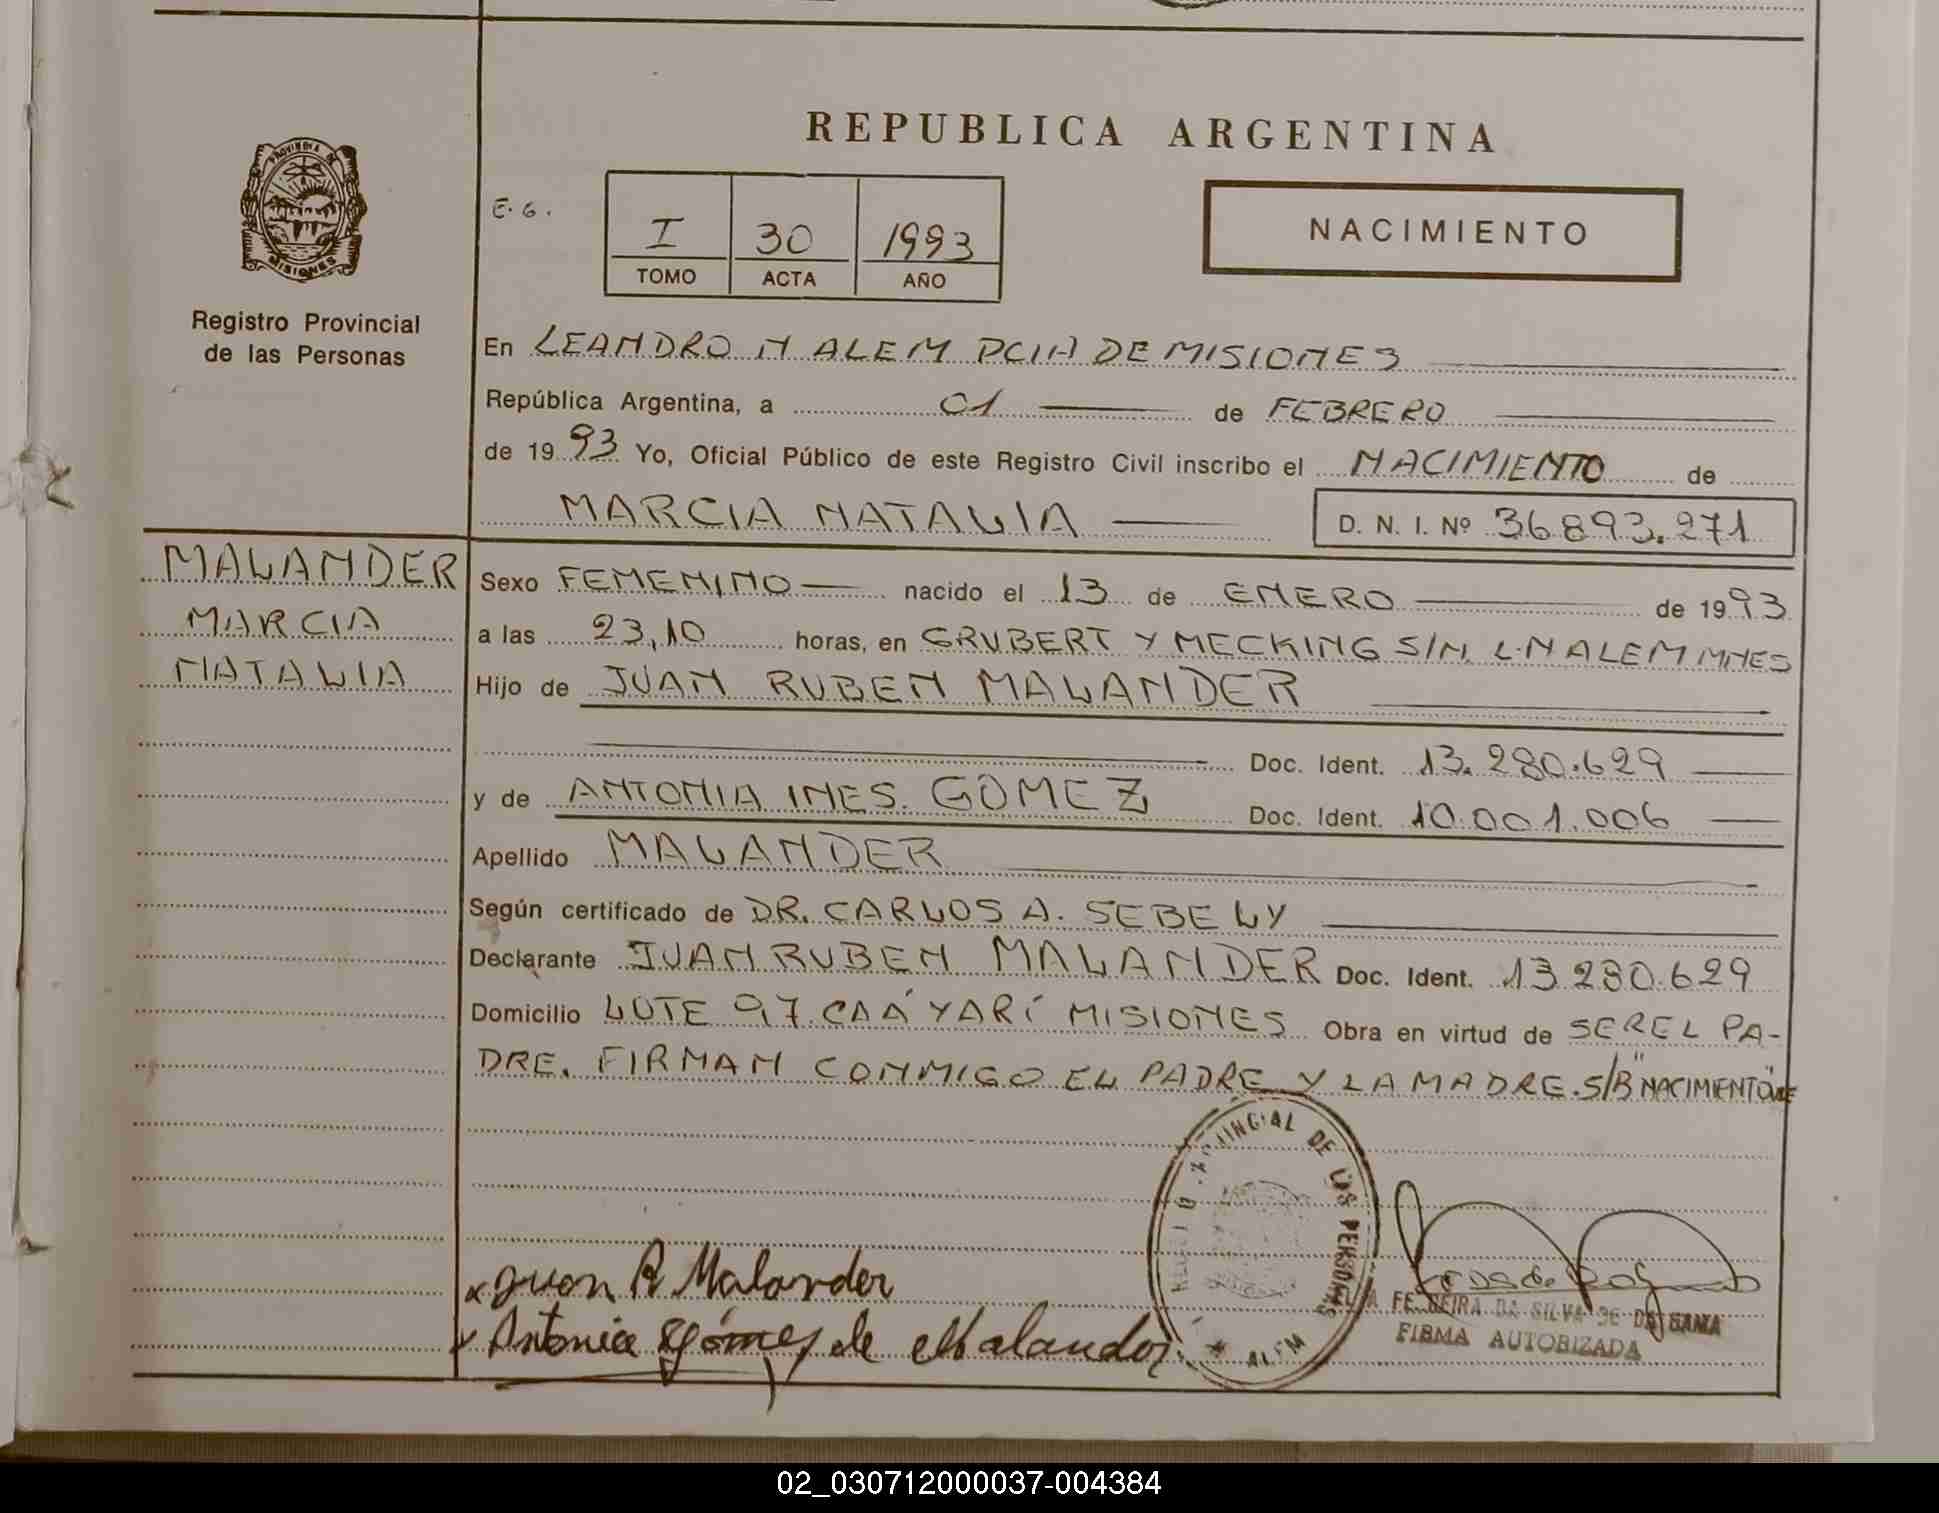 REPUBLICA ARGENTINA
PROVINCIA DE
MISIONES
Registro Provincial
de las Personas
E.G.
I 30 1993
TOMO ACTA AÑO
NACIMIENTO
En LEANDRO N ALEM PCIA DE MISIONES
República Argentina, a 01 de FEBRERO
de 1993 Yo, Oficial Público de este Registro Civil inscribo el NACIMIENTO de
MARCIA NATALIA D. N. I. Nº 36.893.271
MALANDER
MARCIA
NATALIA
Sexo FEMENINO nacido el 13 de ENERO de 1993
a las 23,10 horas, en GRUBERT Y MECKING S/N. L.N ALEM MNES
Hijo de JUAN RUBEN MALANDER
Doc. Ident. 13.280.629
y de ANTONIA INES GOMEZ Doc. Ident. 10.001.006
Apellido MALANDER
Según certificado de DR. CARLOS A. SEBELY
Declarante JUAN RUBEN MALANDER Doc. Ident. 13.280.629
Domicilio LOTE 97 CAÁ YARÍ MISIONES Obra en virtud de SER EL PA-
DRE. FIRMAN CONMIGO EL PADRE Y LA MADRE. S/B "NACIMIENTO" VALE
PROVINCIAL DE LAS PERSONAS
ALEM
Juan R Malander
Antonia Gómez de Malander
FERREIRA DA SILVA DE DA GAMA
FIRMA AUTORIZADA
02_030712000037-004384